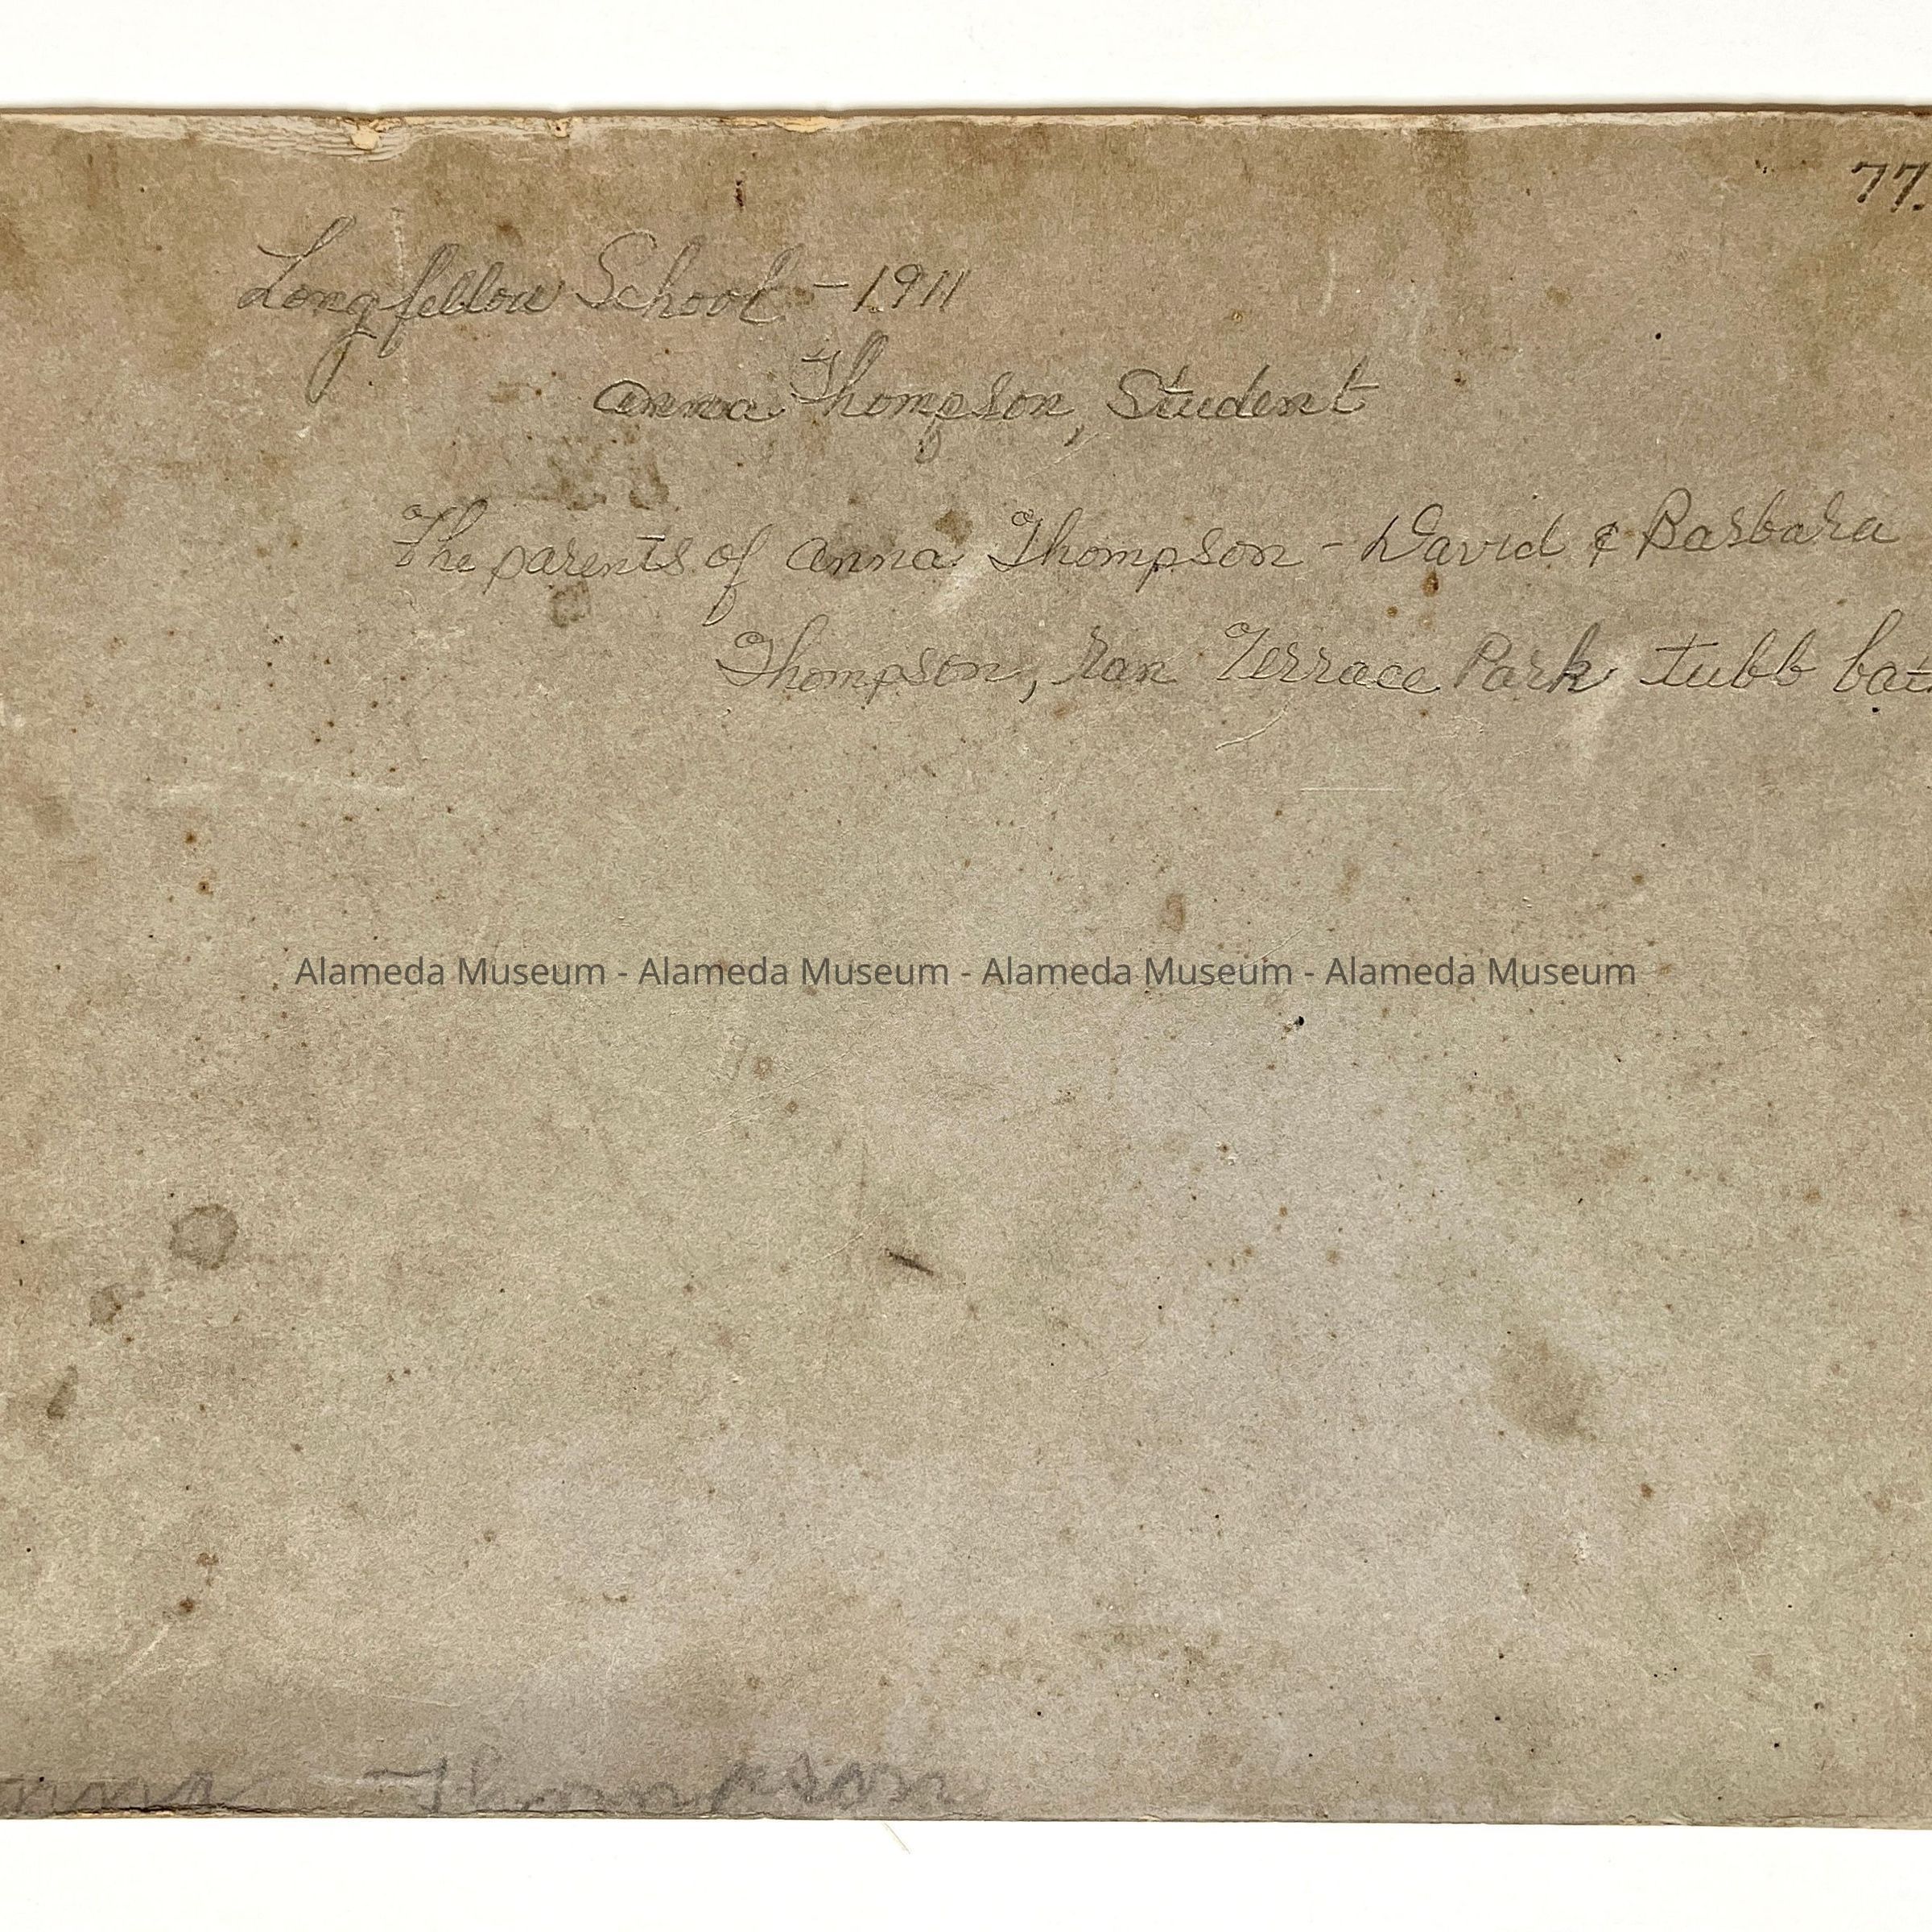 77.
Longfellow School - 1911
Anna Thompson, Student
The parents of Anna Thompson - David & Barbara
Thompson, ran Terrace Park tubb bat
Alameda Museum - Alameda Museum - Alameda Museum - Alameda Museum
Thompson